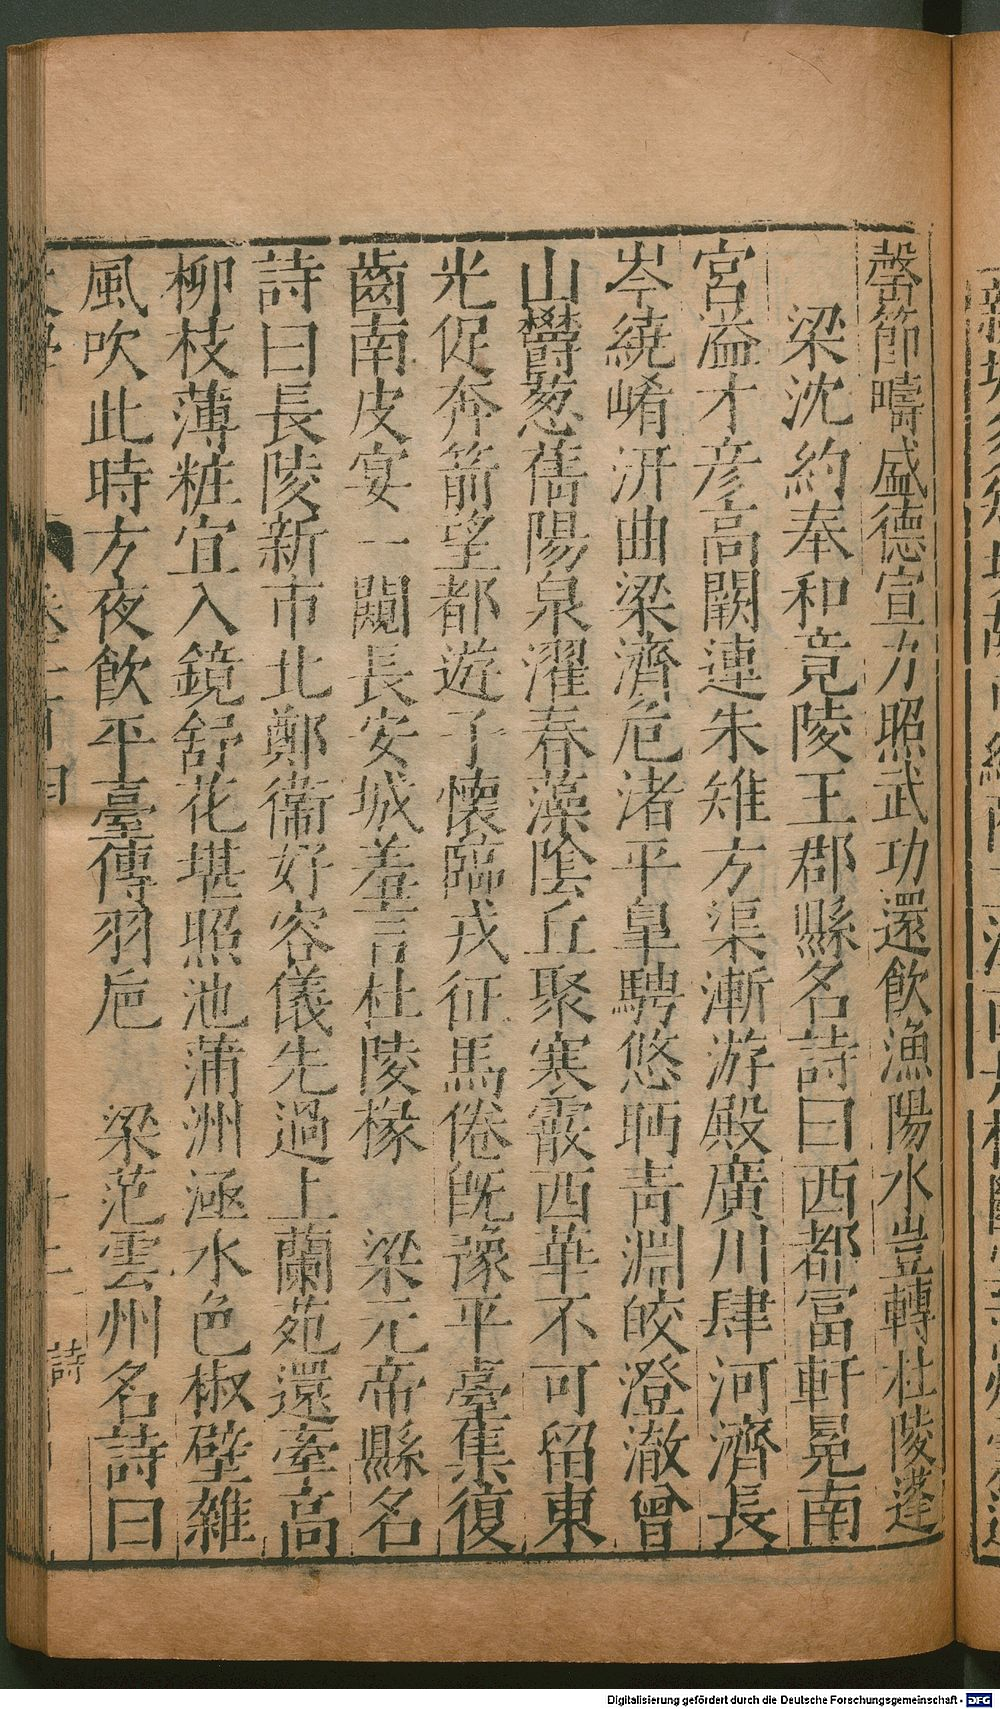 罄節疇盛德宣力照武功還飲漁陽水豈轉杜陵蓬
梁沈約奉和竟陵王郡縣名詩曰西都富軒冕南
宮溢才彥高闕連朱雉方渠漸游殿廣川肆河濟長
岑繞崤汧曲梁濟危渚平皐騁悠眄青淵皎澄澈曾
山欝葱蒨陽泉濯春藻陰丘聚寒霰西華不可留東
光促奔箭望都遊子懷臨戎征馬倦旣豫平臺集復
齒南皮宴一闚長安城羞言杜陵椽 梁元帝縣名
詩曰長陵新市北鄭衞好容儀先過上蘭苑還牽高
柳枝薄粧宜入鏡舒花堪照池蒲洲涵水色椒壁雜
風吹此時方夜飲平臺傳羽巵 梁范雲州名詩曰
詩
Digitalisierung gefördert durch die Deutsche Forschungsgemeinschaft - DFG